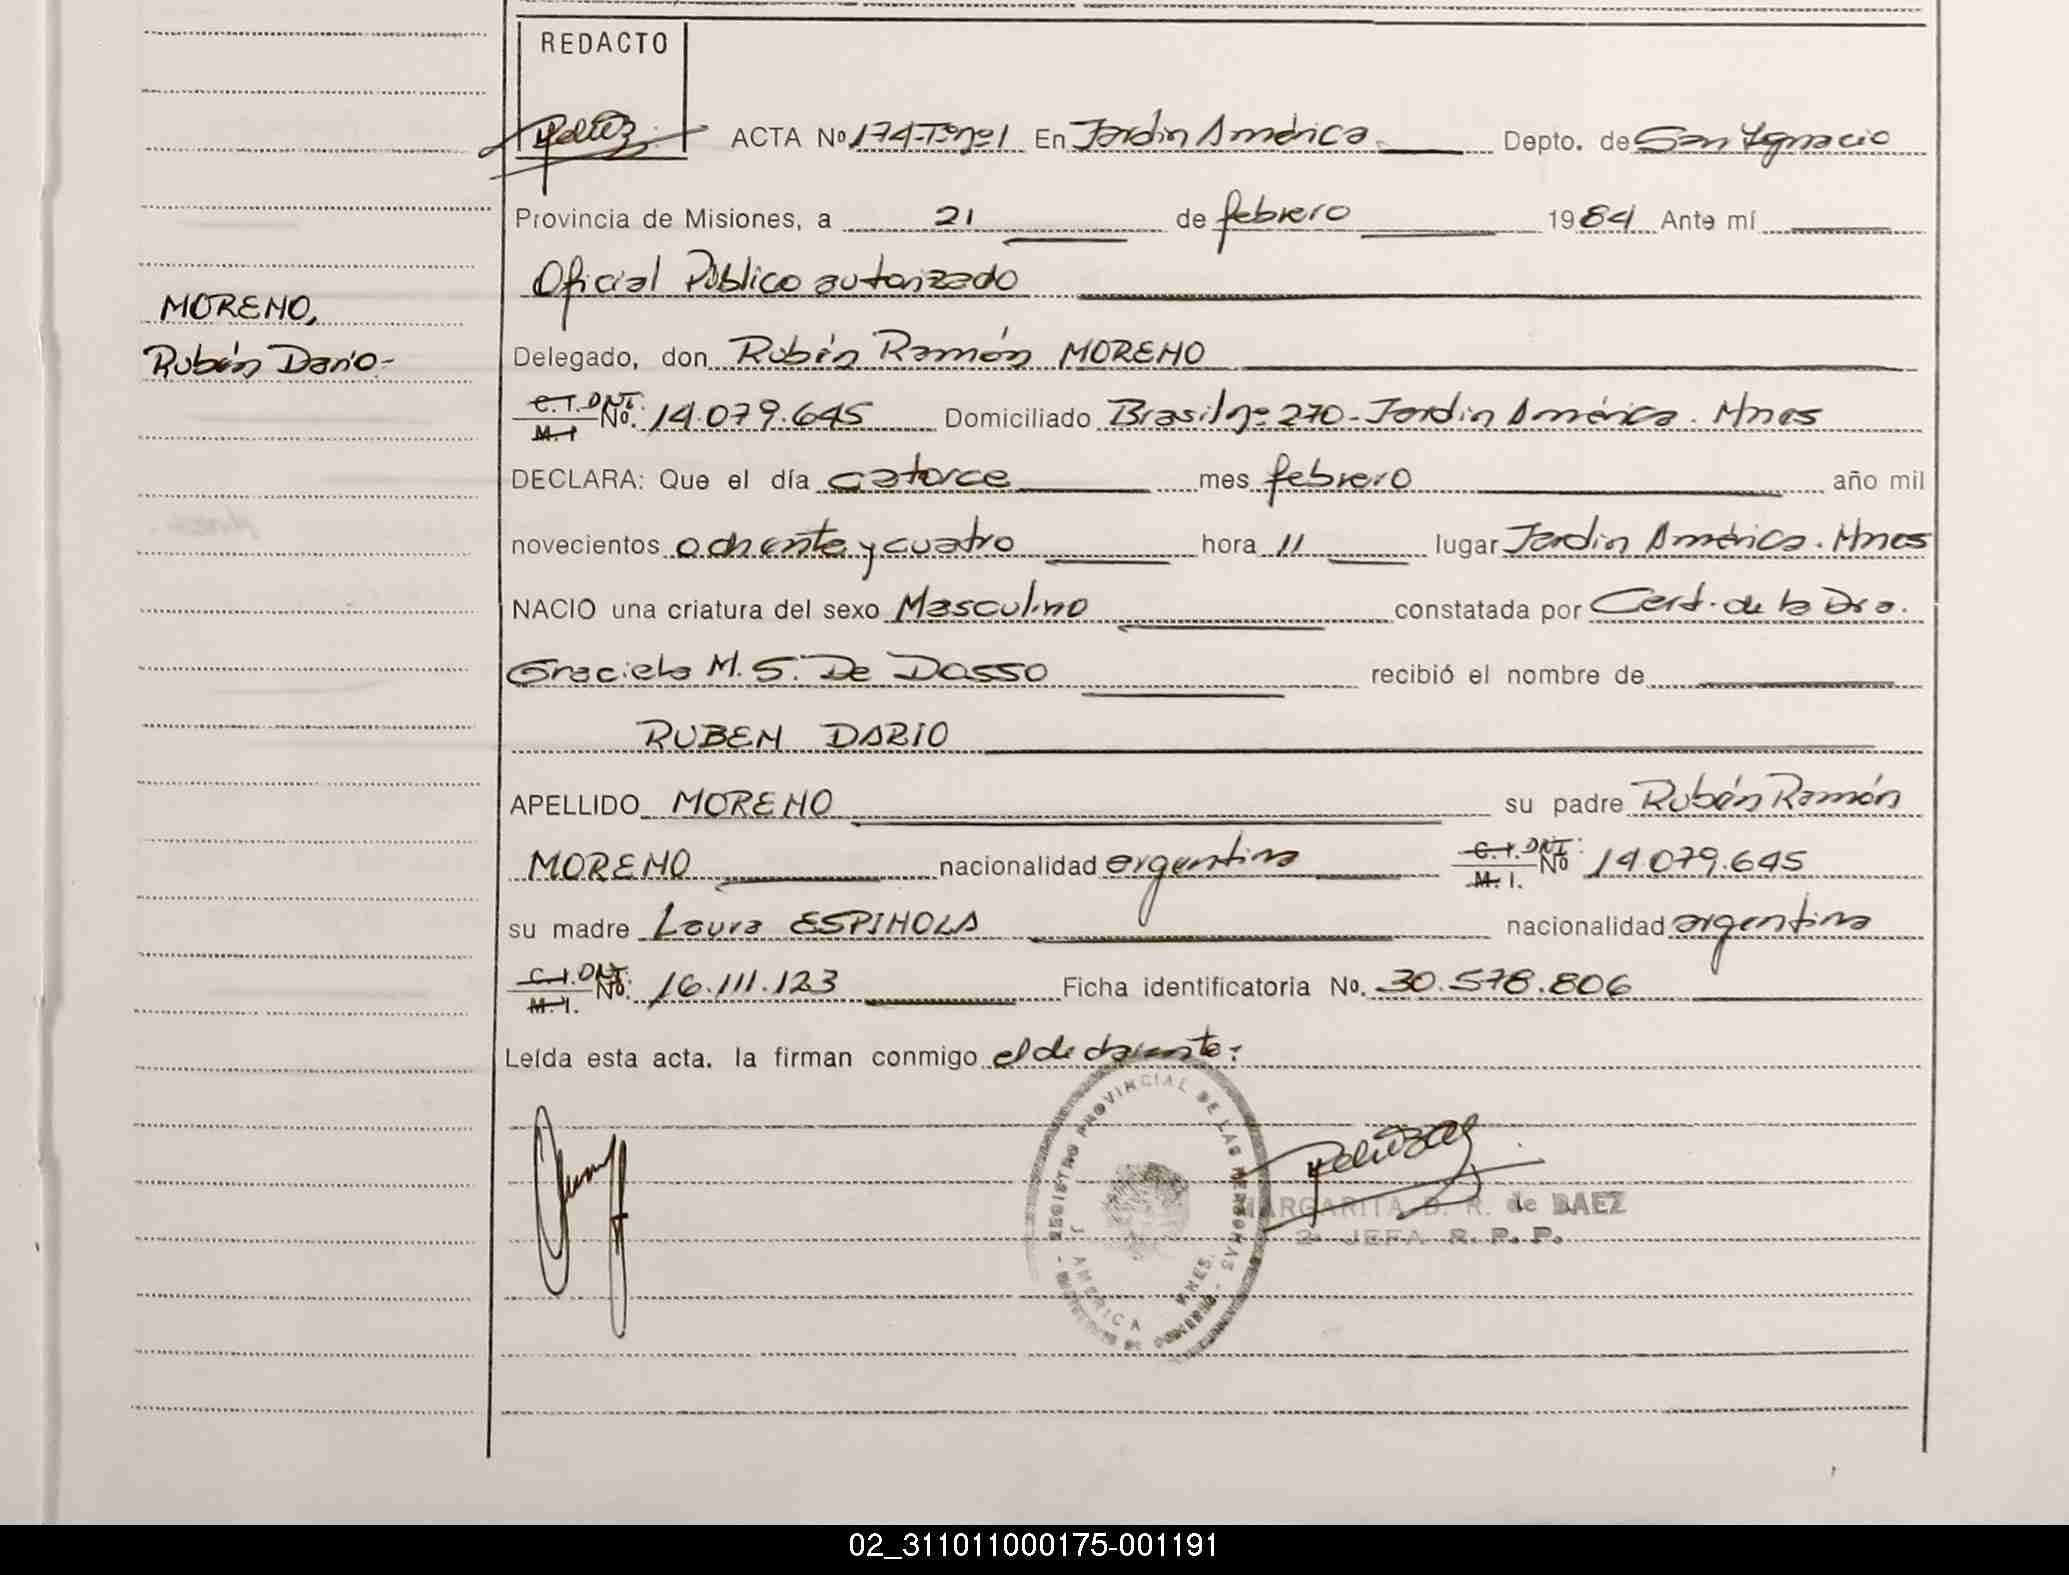 REDACTO
ACTA Nº 174-Tº nº 1 En Jardín América Depto. de San Ignacio
Provincia de Misiones, a 21 de febrero 1984 Ante mí
Oficial Público autorizado
MORENO,
Rubén Darío-
Delegado, don Rubén Ramón MORENO
C.I. DNI. M.I No. 14.079.645 Domiciliado Brasil nº 270 - Jardín América. Mnes
DECLARA: Que el día catorce mes febrero año mil
novecientos ochenta y cuatro hora 11 lugar Jardín América. Mnes
NACIO una criatura del sexo Masculino constatada por Cert. de la Dra.
Graciela M. S. De Dasso recibió el nombre de
RUBEN DARIO
APELLIDO MORENO su padre Rubén Ramón
MORENO nacionalidad argentina C.I. DNI: M.I. Nº 14.079.645
su madre Laura ESPINOLA nacionalidad argentina
C.I. DNI. M.I. No. 16.111.123 Ficha identificatoria No. 30.578.806
Leída esta acta. la firman conmigo el declarante:
REGISTRO PROVINCIAL DE LAS PERSONAS
J. AMERICA MNES.
MARGARITA B. R. de BAEZ
2º JEFA R. P. P.
02_311011000175-001191